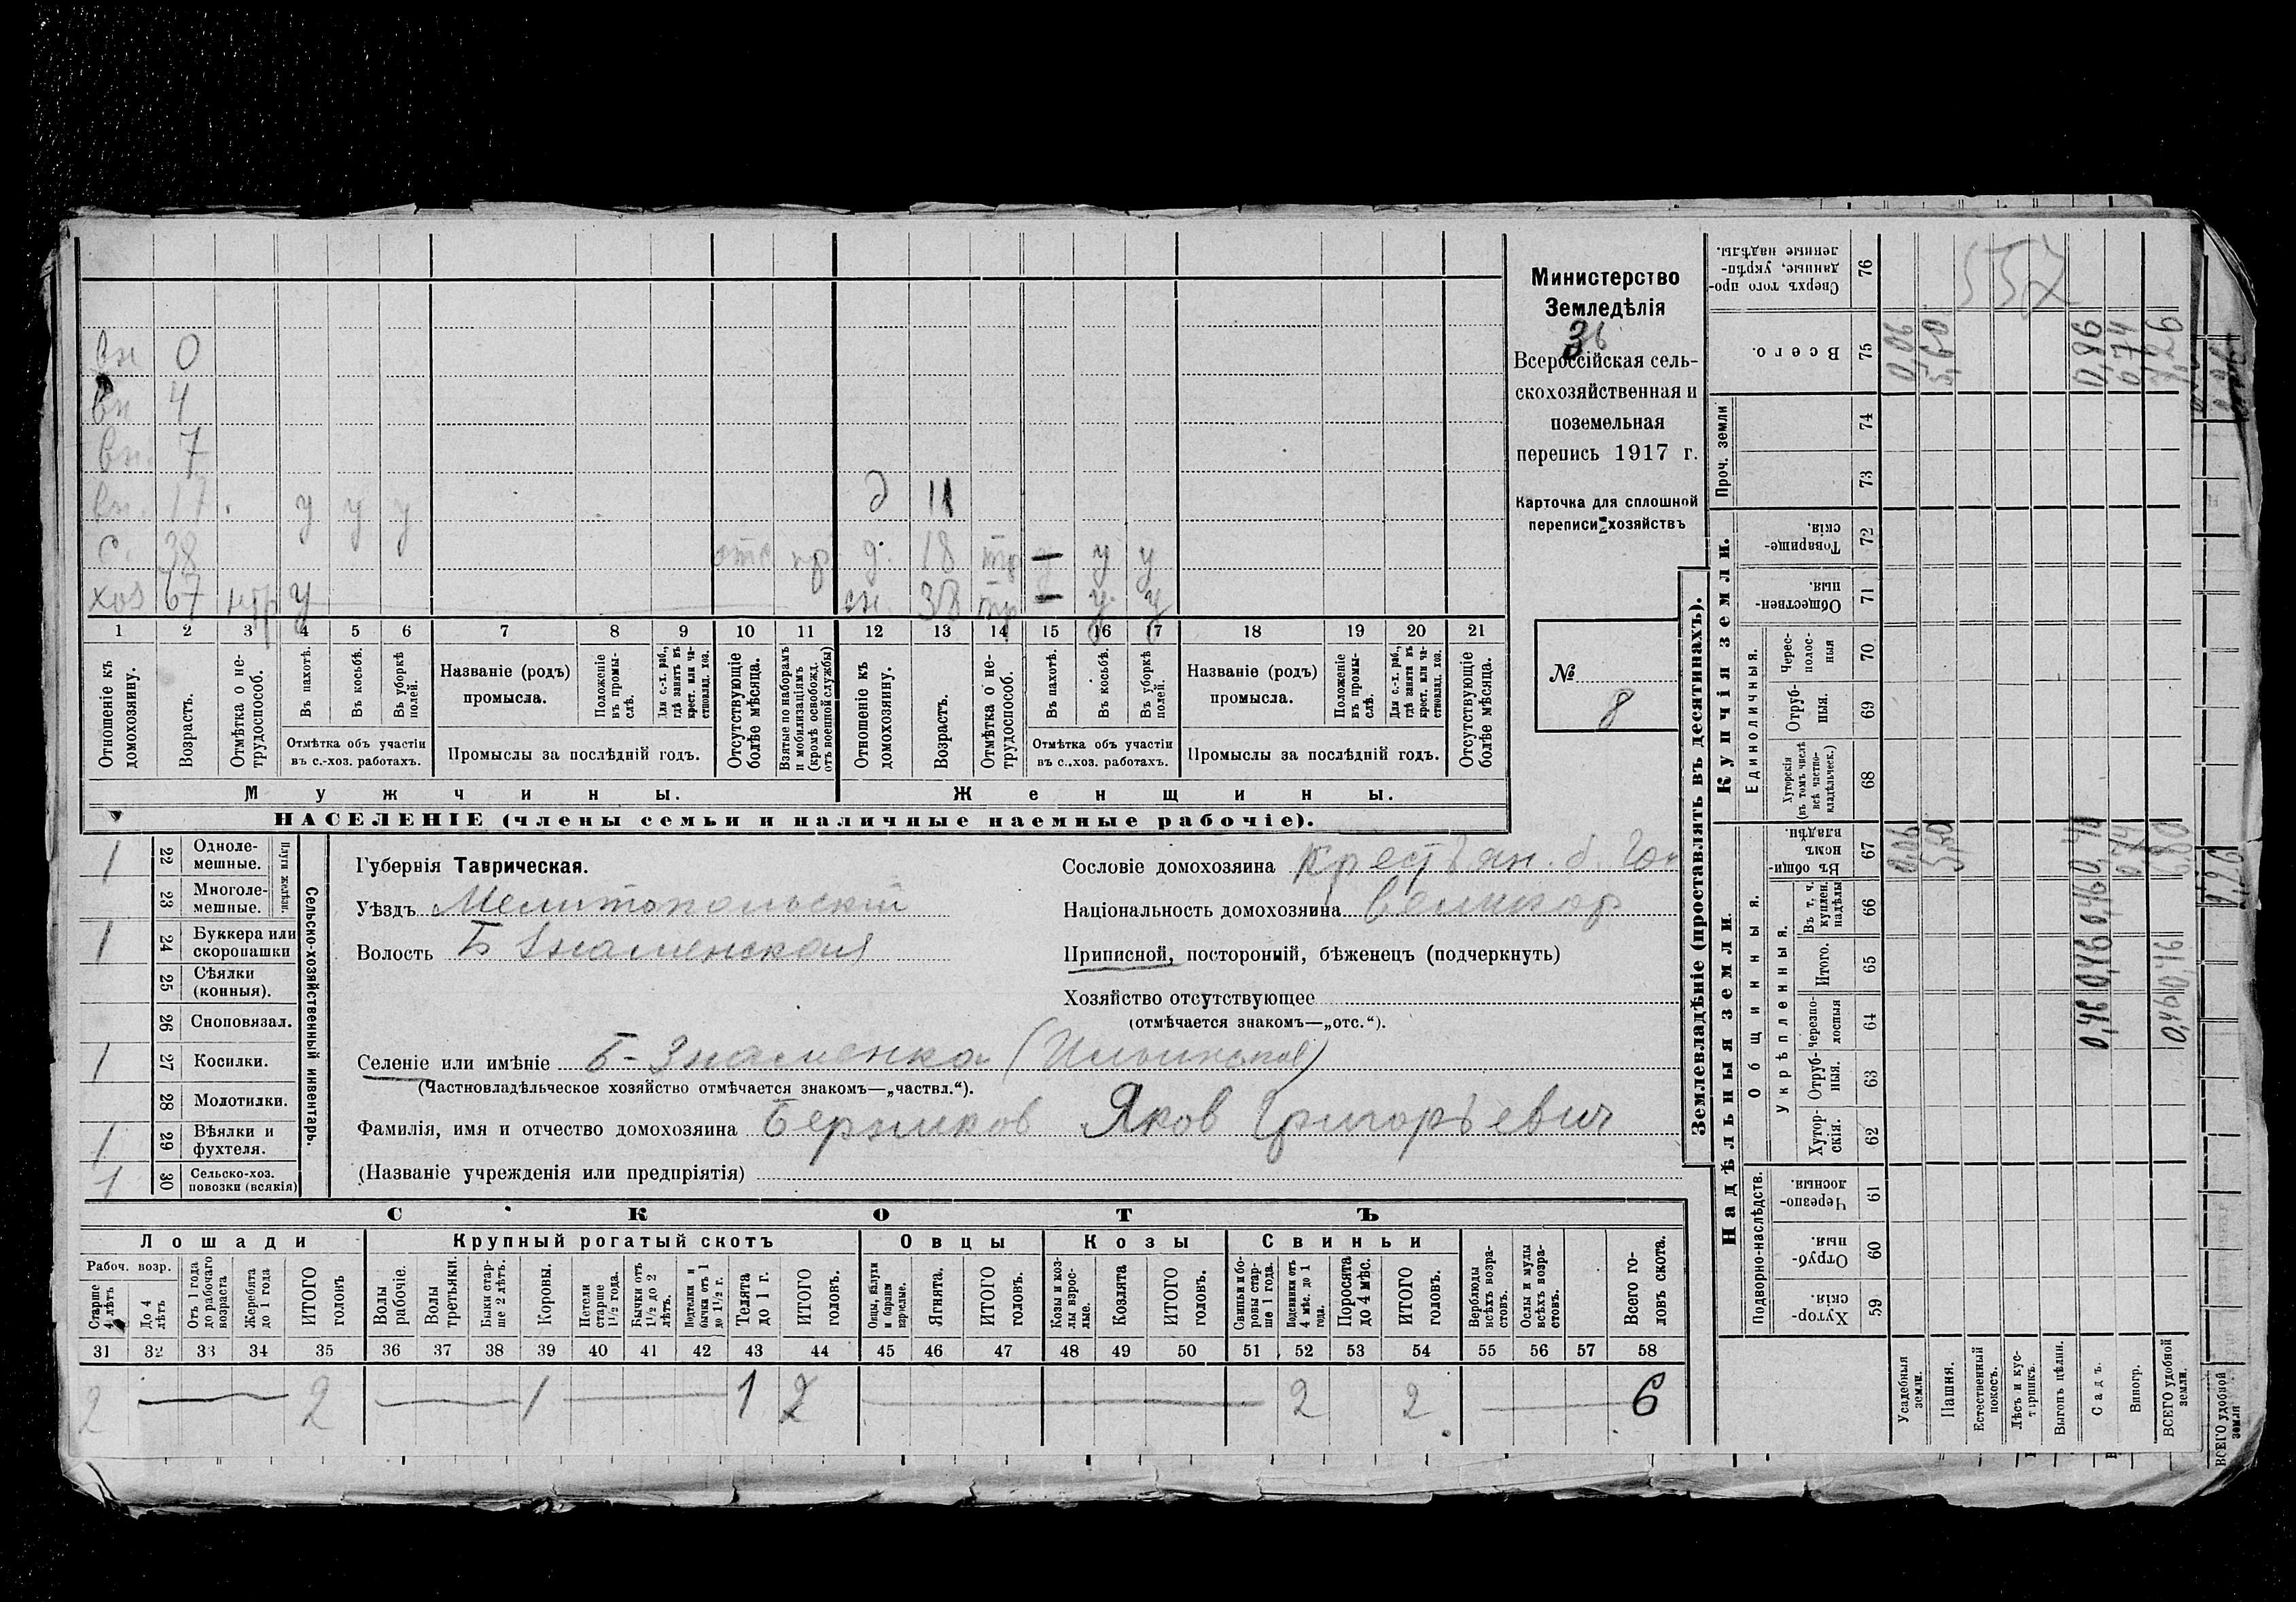 вн 0
вн 4
вн. 7
вн. 17 . у у у д 11
с. 38 отс пр д. 18 тр — у у
хоз 67 нтр у сн. 38 тр — у. у
1 2 3 4 5 6 7 8 9 10 11 12 13 14 15 16 17 18 19 20 21
Отношеніе къ домохозяину.
Возрастъ.
Отмѣтка о не-трудоспособ.
Въ пахотѣ.
Въ косьбѣ.
Въ уборкѣ полей.
Отмѣтка объ участіи
въ с.-хоз. работахъ.
Названіе (родъ)
промысла.
Положеніе въ промы-слѣ.
Для с.-х. раб., гдѣ занятъ въ крест. или ча-стновлад. хоз.
Промыслы за послѣдній годъ.
Отсутствующіе болѣе мѣсяца.
Взятые по наборамъ и мобилизаціямъ (кромѣ освобожд. отъ военной службы)
Отношеніе къ домохозяину.
Возрастъ.
Отмѣтка о не-трудоспособ.
Въ пахотѣ.
Въ косьбѣ.
Въ уборкѣ полей.
Отмѣтка объ участіи
въ с.-хоз. работахъ.
Названіе (родъ)
промысла.
Положеніе въ промы-слѣ.
Для с.-х. раб., гдѣ заняты въ крест. или ча-стновлад. хоз.
Промыслы за послѣдній годъ.
Отсутствующіе болѣе мѣсяца.
Мужчины. Женщины.
НАСЕЛЕНІЕ (члены семьи и наличные наемные рабочіе).
Министерство
Земледѣлія
36
Всероссійская сель-
скохозяйственная и
поземельная
перепись 1917 г.
Карточка для сплошной
переписи хозяйствъ
№
8
1 22 Одноле-мешные.
23 Многоле-мешные.
Плуги желѣзн.
1 24 Буккера или скоропашки
25 Сѣялки (конныя).
26 Сноповязал.
1 27 Косилки.
28 Молотилки.
1 29 Вѣялки и фухтеля.
1 30 Сельско-хоз. повозки (всякія)
Сельско-хозяйственный инвентарь.
Губернія Таврическая.
Уѣздъ Мелитопольскій
Волость Б Знаменская
Сословіе домохозяина Крестьян. б.
Національность домохозяина Великор
Приписной, посторонній, бѣженецъ (подчеркнуть)
Хозяйство отсутствующее
(отмѣчается знакомъ—„отс.“).
Селеніе или имѣніе Б-Знаменка (Ильинской)
(Частновладѣльческое хозяйство отмѣчается знакомъ—„частвл.“).
Фамилія, имя и отчество домохозяина Яков Григорьевич
(Названіе учрежденія или предпріятія)
СКОТЪ
Лошади Крупный рогатый скотъ Овцы Козы Свиньи
Рабоч. возр.
Старше 4 лѣтъ
До 4 лѣтъ
Отъ 1 года до рабочаго возраста
Жеребята до 1 года
ИТОГО головъ
Волы рабочіе.
Волы третьяки.
Быки стар-ше 2 лѣтъ.
Коровы.
Нетели старше 1½ года.
Бычки отъ 1½ до 2 лѣтъ.
Подтелки и бычки отъ 1 до 1½ г.
Телята до 1 г.
ИТОГО головъ.
Овцы, валухи и бараны взрослые.
Ягнята.
ИТОГО головъ.
Козы и коз-лы взрос-лые.
Козлята
ИТОГО головъ.
Свиньи и бо-ровы стар-ше 1 года.
Подсвинки отъ 4 мѣс. до 1 года.
Поросята до 4 мѣс.
ИТОГО головъ.
Верблюды всѣхъ возра-стовъ.
Ослы и мулы всѣхъ возра-стовъ.
Всего го-ловъ скота.
31 32 33 34 35 36 37 38 39 40 41 42 43 44 45 46 47 48 49 50 51 52 53 54 55 56 57 58
2 — 2 — 1 — 1 2 — 2 2 — 6
Землевладѣніе (проставлять въ десятинахъ).
Надѣльныя земли. Купчія земли. Проч. земли
Подворно-наслѣдств. Общинныя. Укрѣпленныя. Единоличныя.
Хутор-скія. 59
Отруб-ныя. 60
Черезпо-лосныя. 61
Хутор-скія. 62
Отруб-ныя. 63
Черезпо-лосныя 64
Итого. 65
Въ т. ч. куплен. надѣлы 66
Въ общи-номъ владѣн. 67
Хуторскія (въ томъ числѣ всѣ частно-владѣльческ.) 68
Отруб-ныя. 69
Черес-полос-ныя 70
Обществен-ныя. 71
Товарище-скія. 72
73
74
Всего. 75
Сверхъ того про-данные, укрѣп-ленные надѣлы. 76
557
Усадебныя земли. 0,06 0,06
Пашня. 5,60
Естественный покосъ.
Лѣсъ и кус-тарникъ.
Выгонъ цѣлин.
Садъ. 0,46 0,46 0,46 0,96
Виногр. 0,74 0,74
ВСЕГО удобной земли. 0,46 0,46 6,80 7,26
ВСЕГО удобной земли